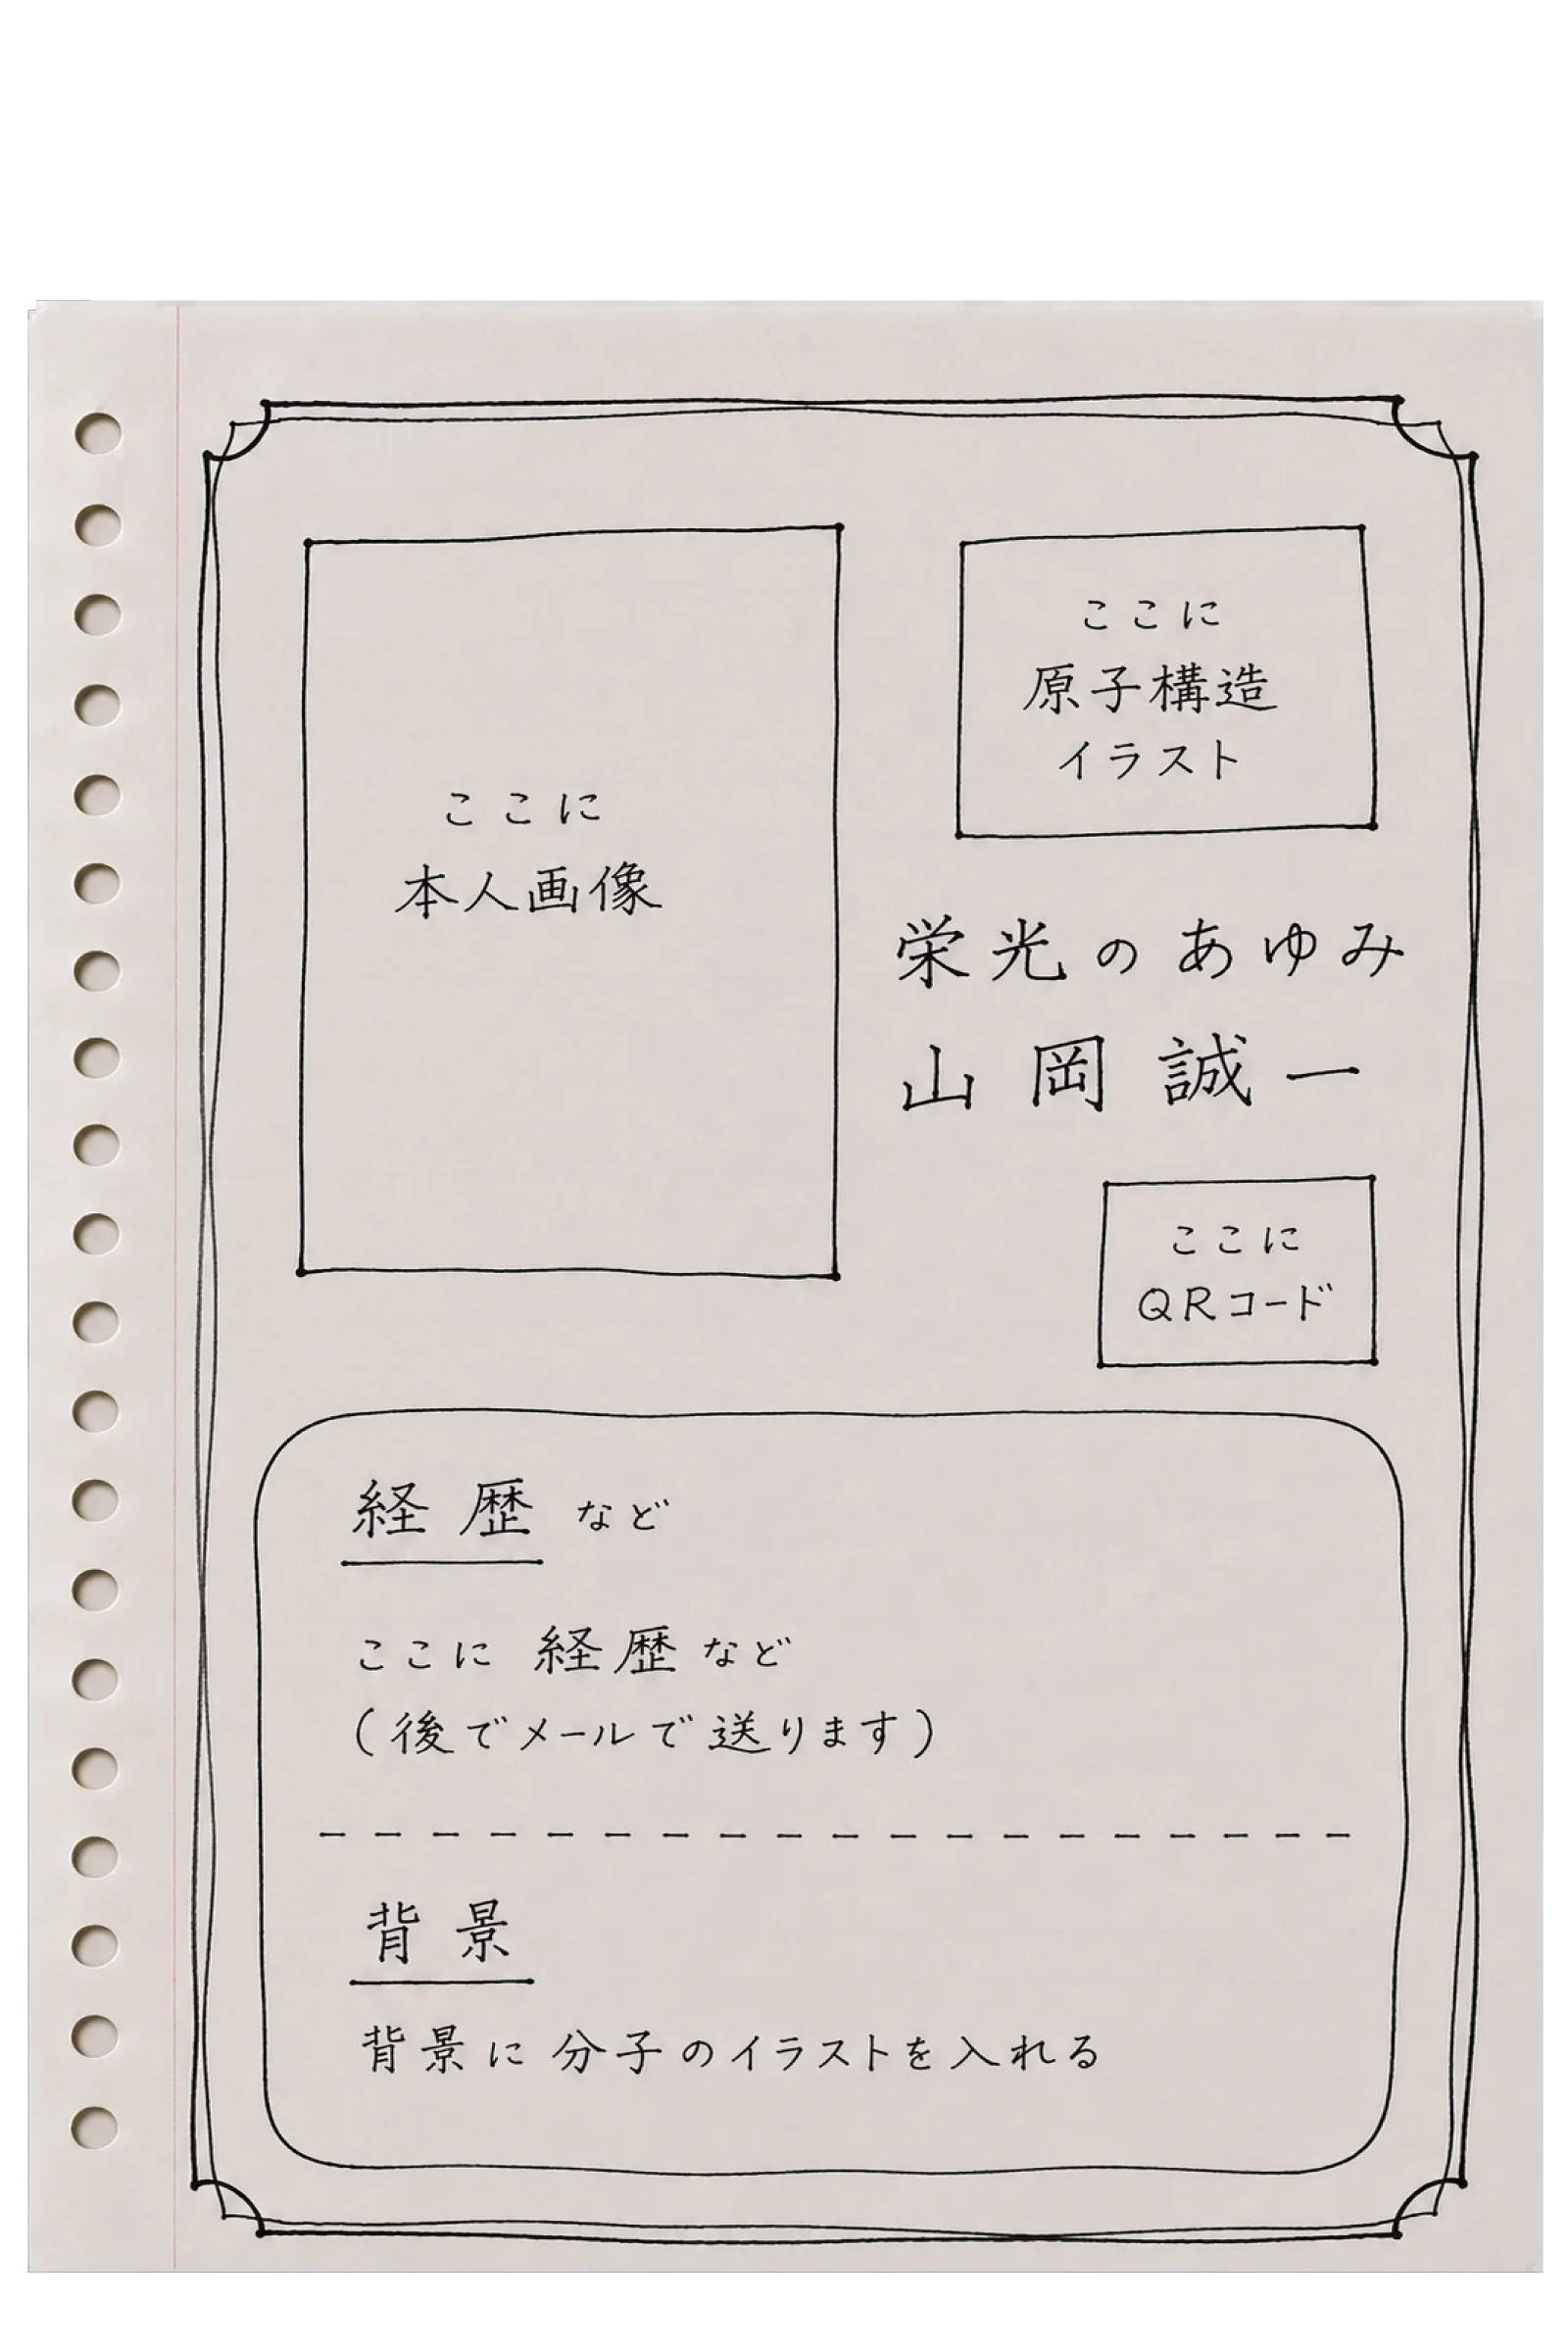 ここに
本人画像
ここに
原子構造
イラスト
栄光のあゆみ
山岡誠一
ここに
QRコード
経歴など
ここに経歴など
(後でメールで送ります)
背景
背景に分子のイラストを入れる